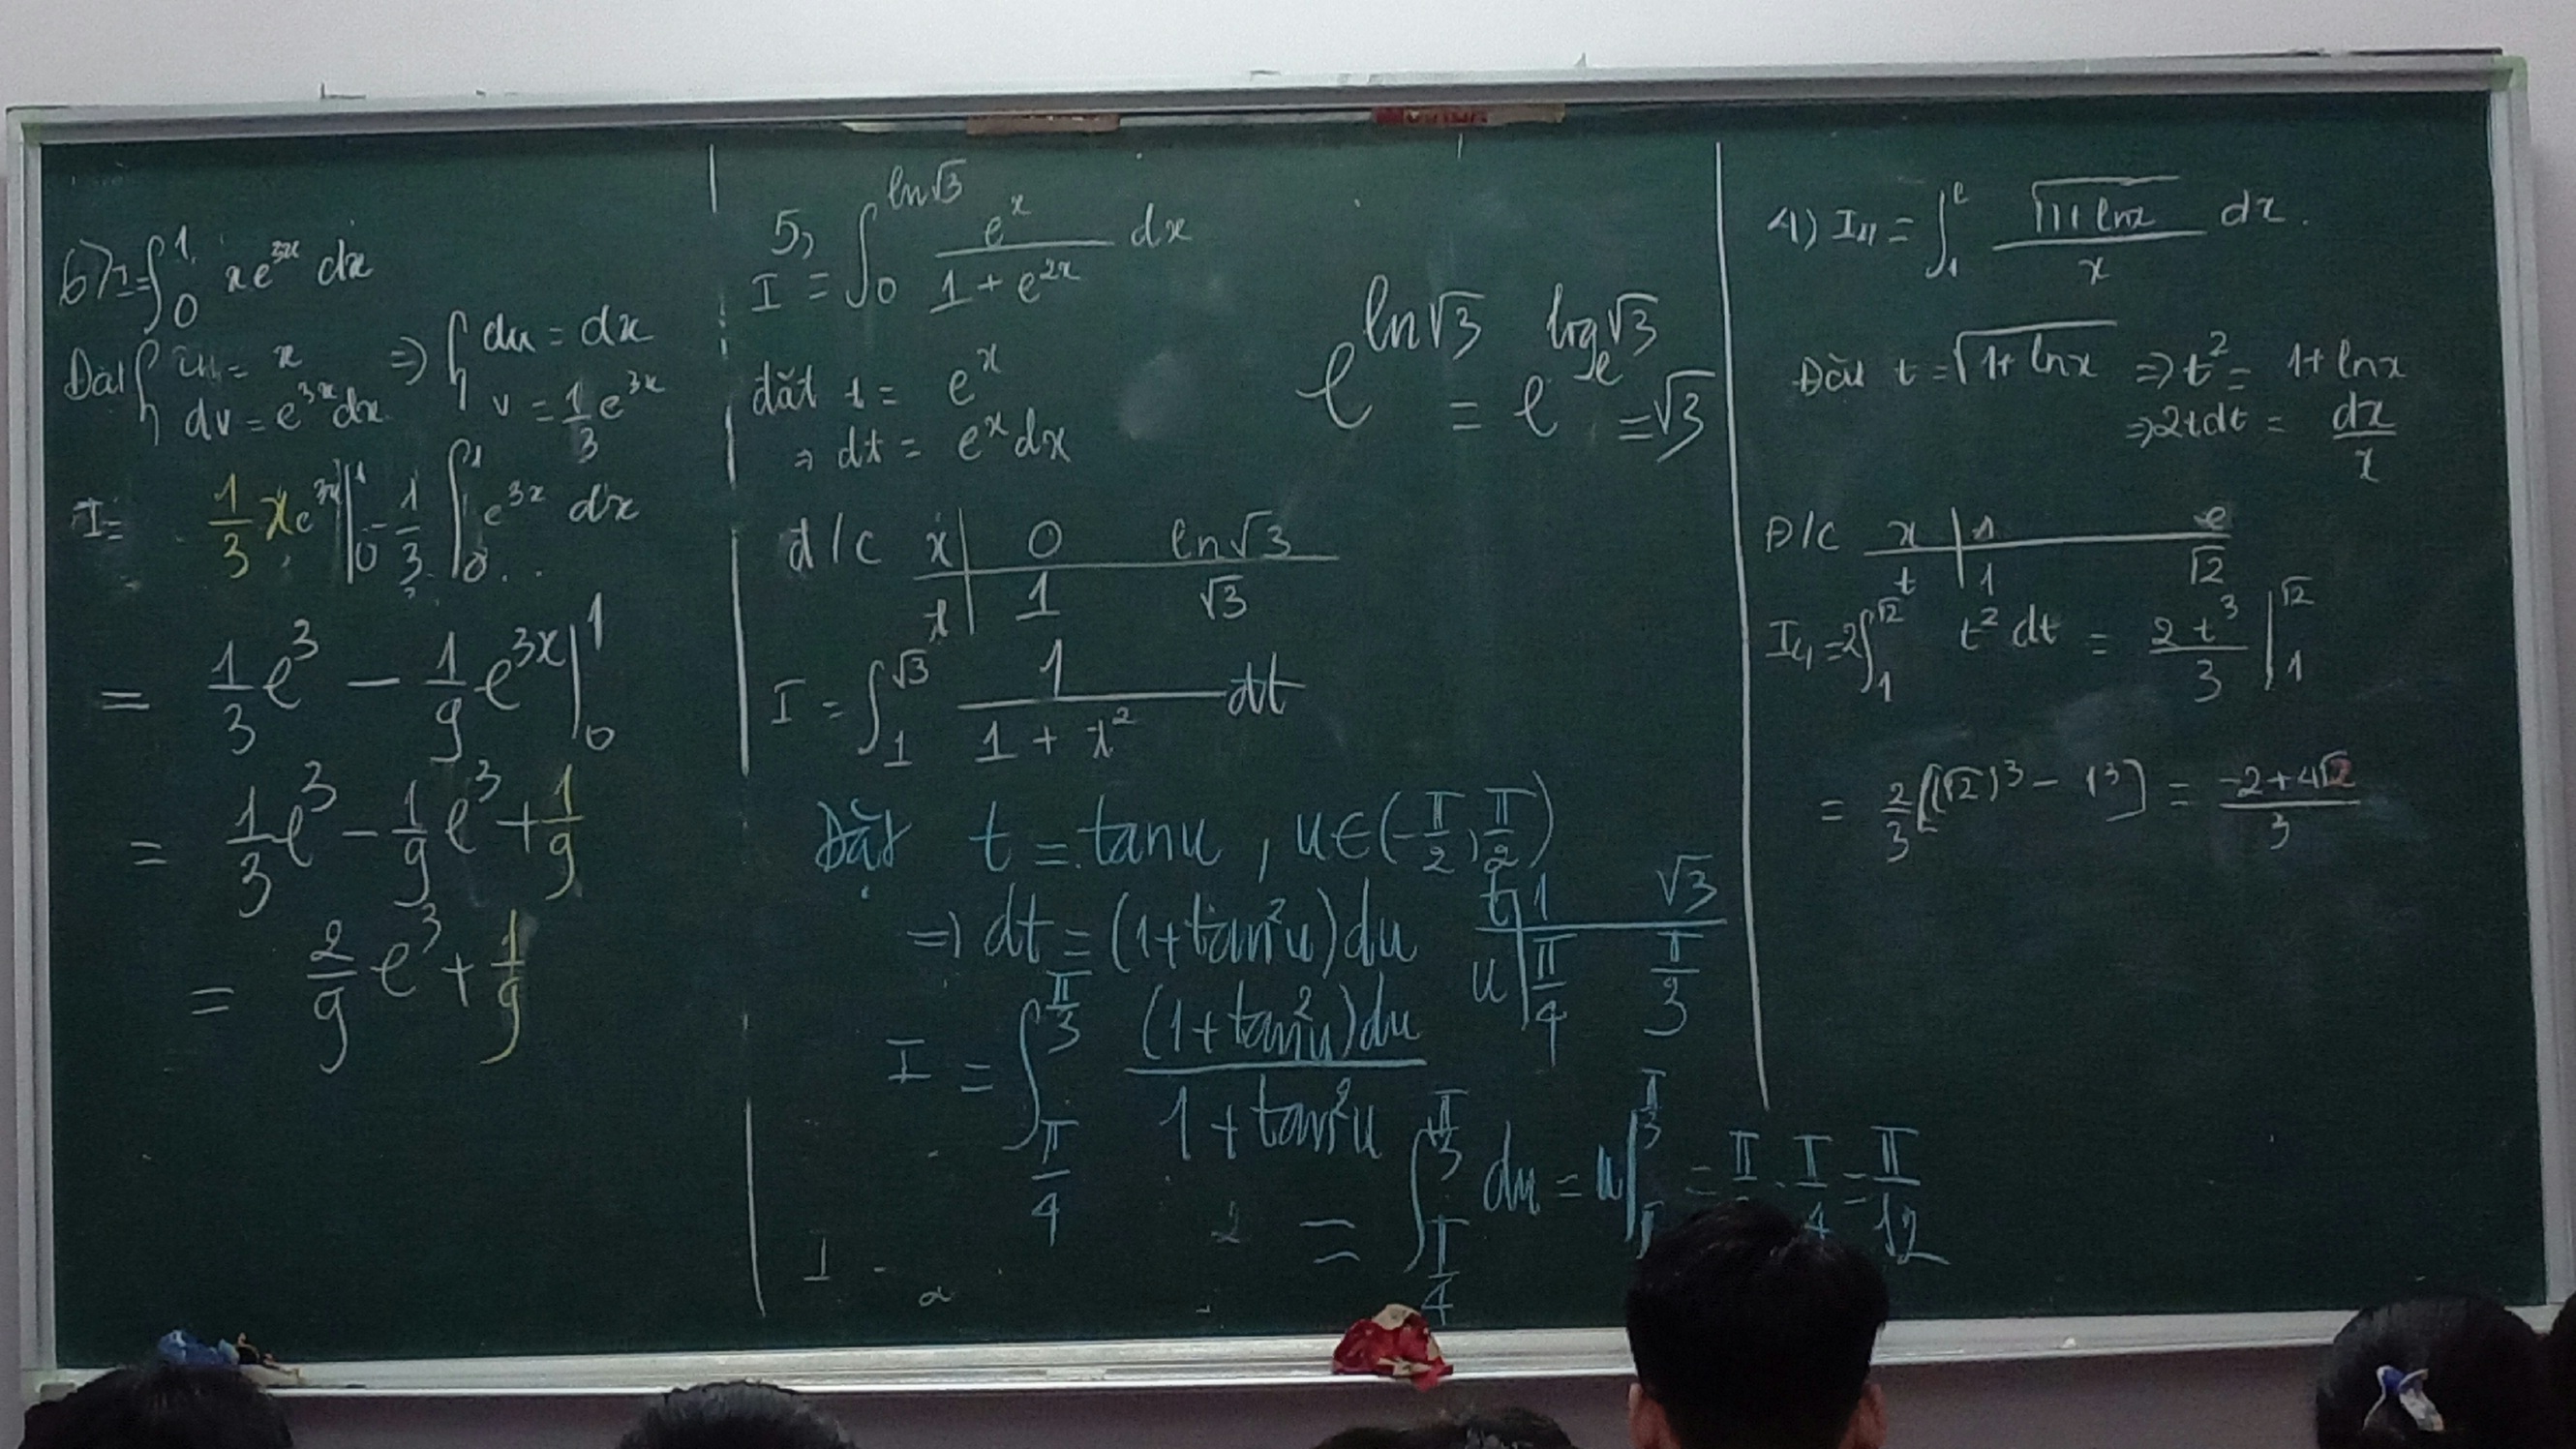 6) I = ∫₀¹ x e^{3x} dx
Đặt { u = x ⇒ { du = dx
dv = e^{3x} dx v = 1/3 e^{3x}
I = 1/3 x e^{3x} |₀¹ - 1/3 ∫₀¹ e^{3x} dx
= 1/3 e³ - 1/9 e^{3x} |₀¹
= 1/3 e³ - 1/9 e³ + 1/9
= 2/9 e³ + 1/9
5)
I = ∫₀^{ln√3} e^x / (1 + e^{2x}) dx
đặt t = e^x
⇒ dt = e^x dx
e^{ln√3} = e^{log_e √3} = √3
đ/c x | 0 ln√3
t | 1 √3
I = ∫₁^{√3} 1 / (1 + t²) dt
Đặt t = tanu , u ∈ (-π/2, π/2)
⇒ dt = (1+tan²u)du
t | 1 √3
u | π/4 π/3
I = ∫_{π/4}^{π/3} (1+tan²u)du / (1+tan²u)
= ∫_{π/4}^{π/3} du = u |^{π/3} = π - π/4 = π/12
I -
4) I₄ = ∫₁^e √(1+lnx) / x dx.
Đặt t = √(1+lnx) ⇒ t² = 1+lnx
⇒ 2tdt = dx/x
Đ/C x | 1 e
t | 1 √2
I₄ = 2∫₁^{√2} t² dt = 2t³/3 |₁^{√2}
= 2/3 [(√2)³ - 1³] = (-2+4√2)/3